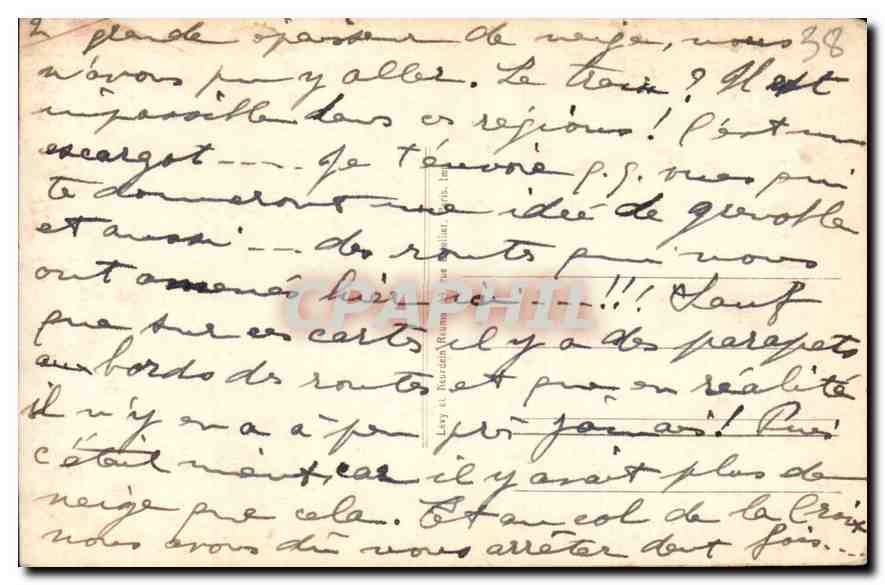 2 grande épaisseur de neige, nous 38
n'avons pu y aller. Le train? Il est
impossible dans ces régions! C'est un
escargot ---- Je t'envoie q.q. vues qui
te donneront une idée de Grenoble
et aussi --- des routes qui nous
ont amenés hier ici ---- !!! Sauf
que sur ces cartes il y a des parapets
aux bords des routes et que en réalité
il n'y en a à peu près jamais! Puis
c'était car il y avait plus de
neige que cela. Et au col de la Croix
nous avons dû nous arrêter dent fois....
Lévy et Neurdein Réunis rue Paris. Imp.
CPAPHIL